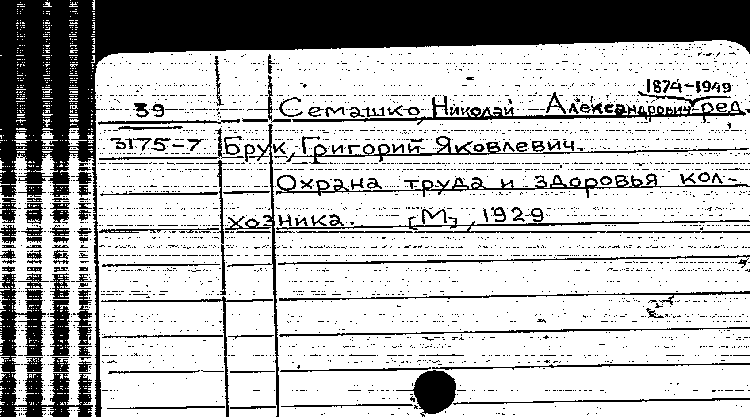 1874-1949
39 Семашко, Николай Александрович ред.
3175-7 Брук, Григорий Яковлевич.
Охрана труда и здоровья кол-
хозника. [М], 1929